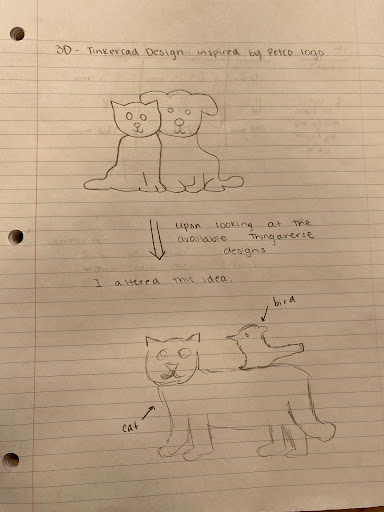 3D - Tinkercad Design inspired by Petco logo
Upon looking at the
available Thingaverse
designs
I altered this idea.
bird
cat